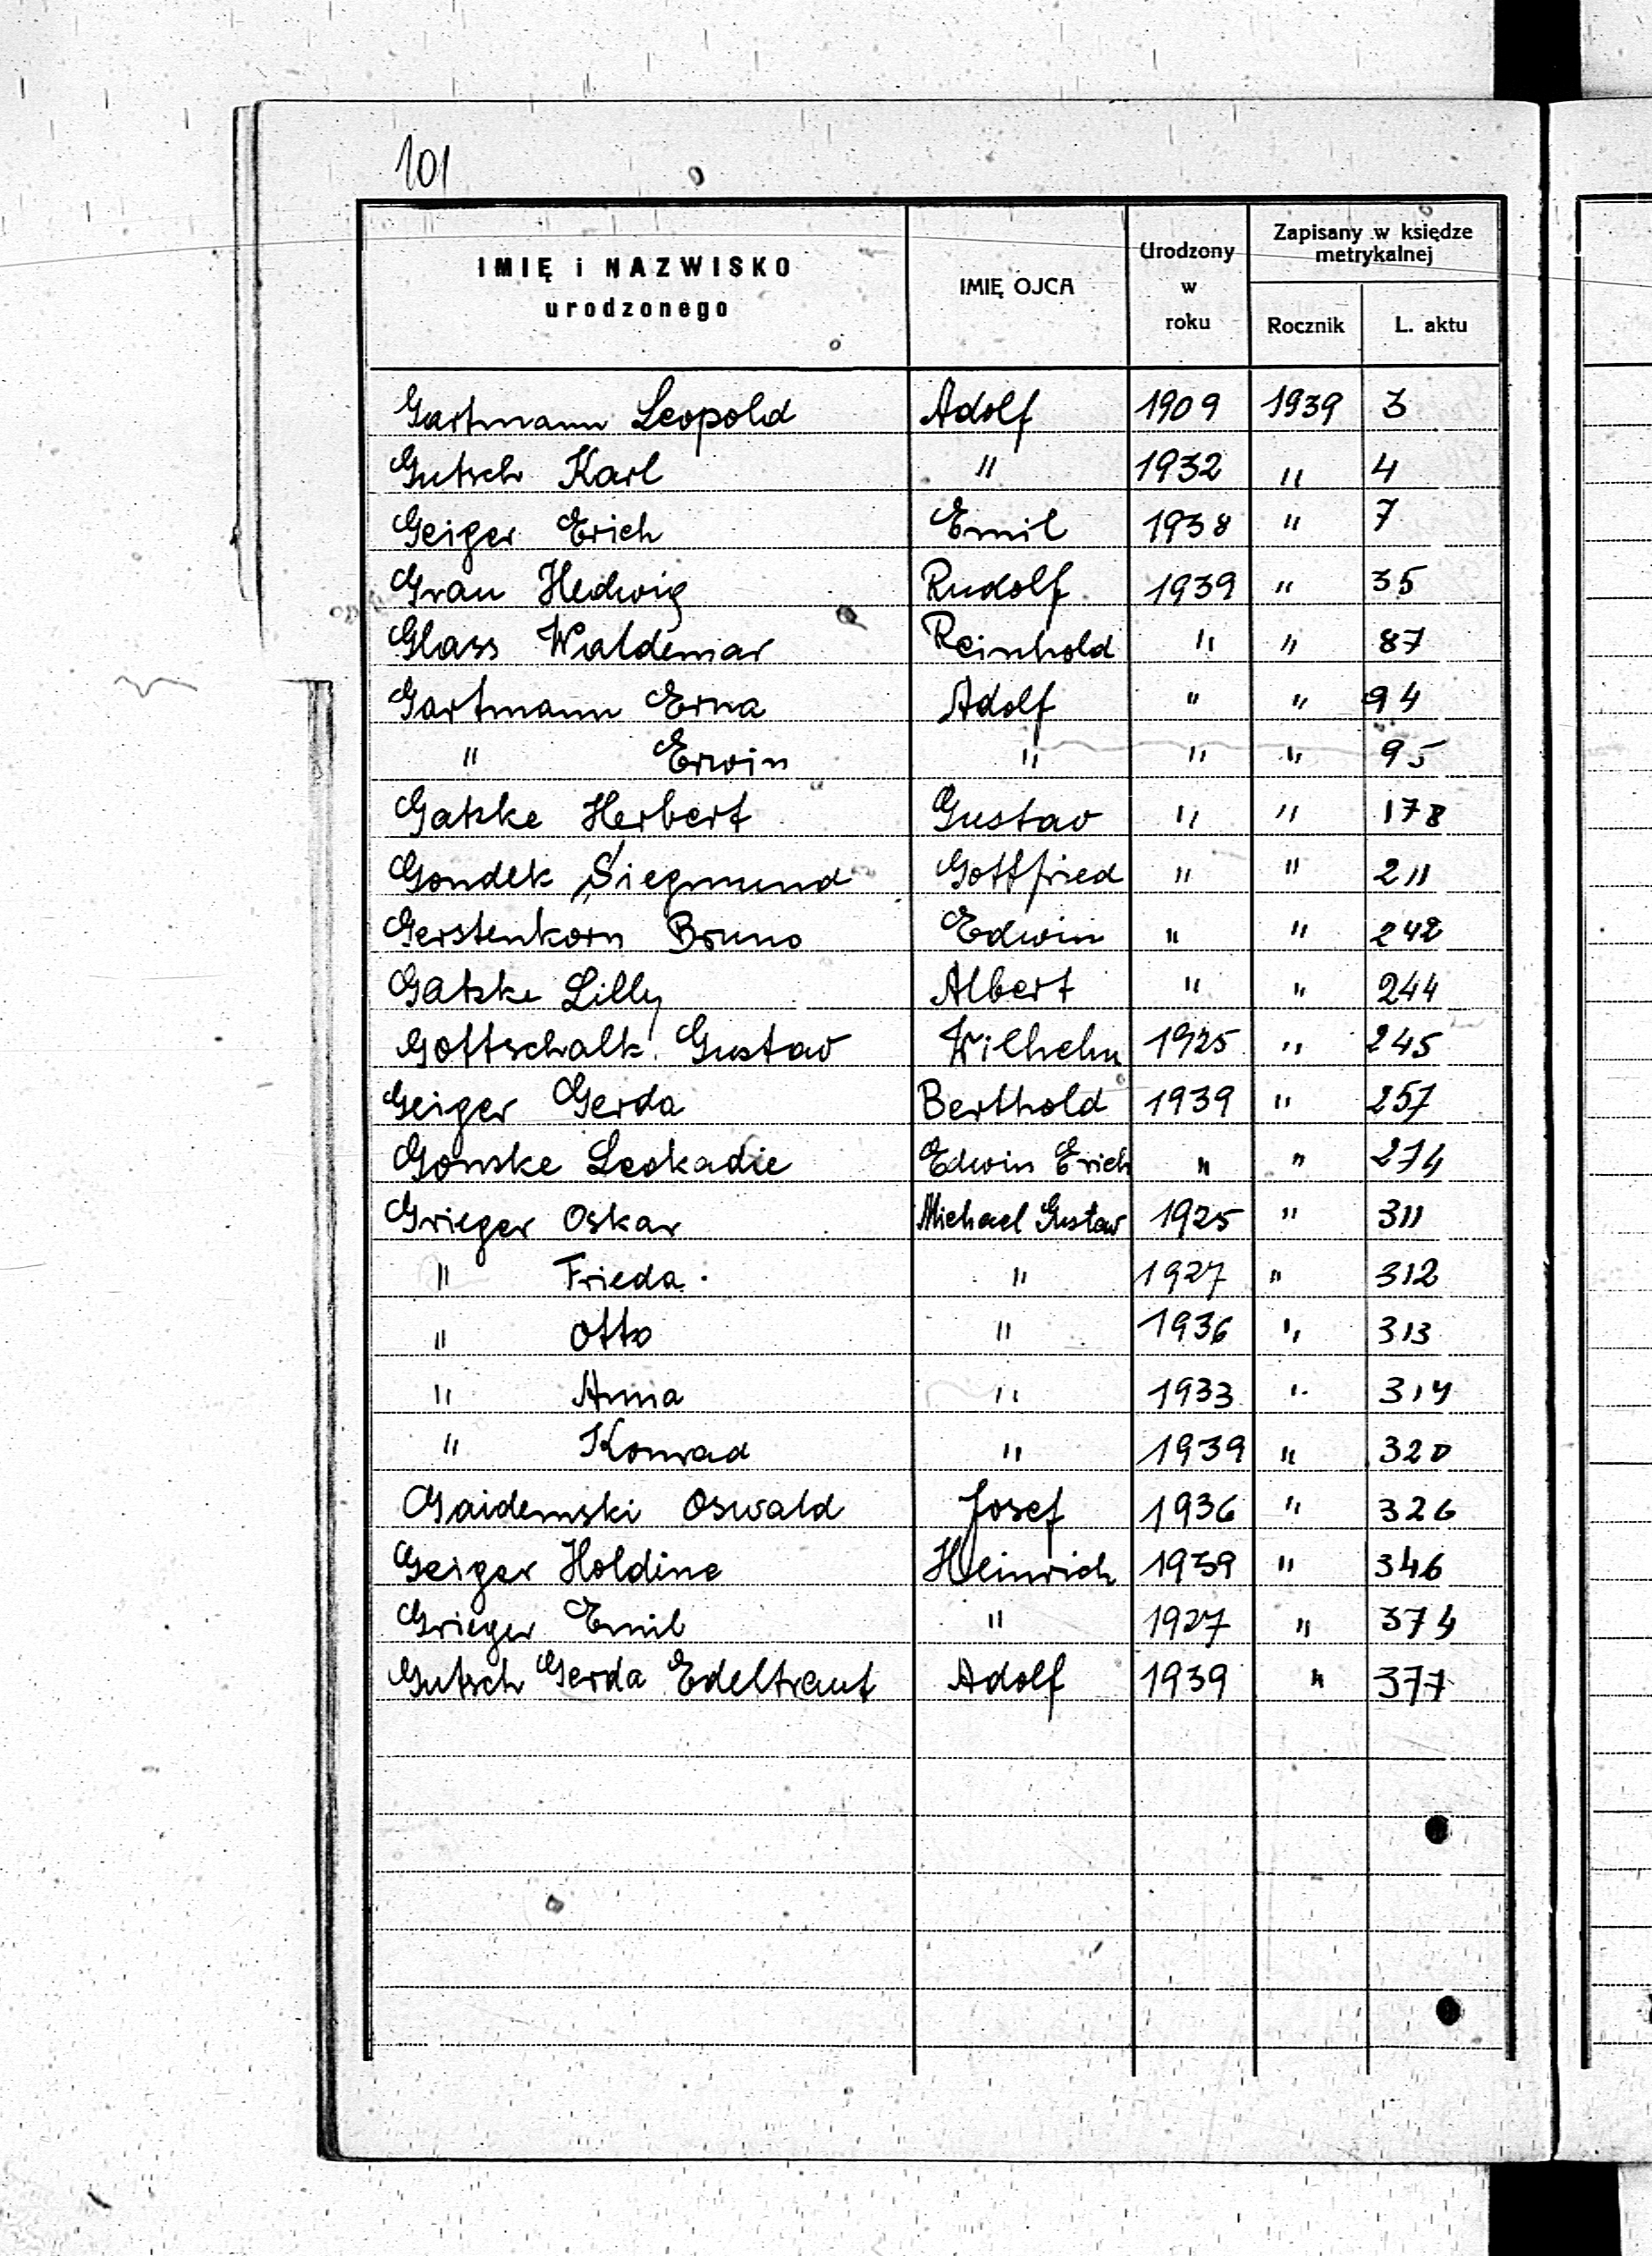 101
IMIĘ i NAZWISKO urodzonego | IMIĘ OJCA | Urodzony w roku | Zapisany w księdze metrykalnej
Rocznik | L. aktu
Gartmann Leopold | Adolf | 1909 | 1939 | 3
Gutsch Karl | " | 1932 | " | 4
Geiger Erich | Emil | 1938 | " | 7
Grau Hedwig | Rudolf | 1939 | " | 35
Glass Waldemar | Reinhold | " | " | 87
Gartmann Erna | Adolf | " | " | 94
" Erwin | " | " | " | 95
Gatzke Herbert | Gustav | " | " | 178
Gondek Siegmund | Gottfried | " | " | 211
Gerstenkorn Bruno | Edwin | " | " | 242
Gatzke Lilly | Albert | " | " | 244
Gottschalk Gustav | Wilhelm | 1925 | " | 245
Geiger Gerda | Berthold | 1939 | " | 257
Gonske Leokadie | Edwin Erich | " | " | 274
Grieger Oskar | Michael Gustav | 1925 | " | 311
" Frieda | " | 1927 | " | 312
" Otto | " | 1936 | " | 313
" Anna | " | 1933 | " | 314
" Konrad | " | 1939 | " | 320
Gaidemski Oswald | Josef | 1936 | " | 326
Geiger Holdine | Heinrich | 1939 | " | 346
Grieger Emil | " | 1927 | " | 374
Gutsch Gerda Edeltraut | Adolf | 1939 | " | 377